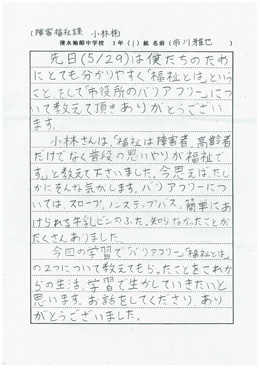 [障害福祉課 小林様]
清水袖師中学校 1年(1)組 名前(市川雅也)
先日(5/29)は僕たちのため
にとても分かりやすく「福祉とは」という
こと、そして「市役所のバリアフリー」につ
いて教えて頂きありがとうござい
ます。
小林さんは、「福祉は障害者、高齢者
だけでなく普段の思いやりが福祉で
す。」と教えて下さいました。今思えばた
しかにそんな気がします。バリアフリーにつ
いては、スロープ、ノンステップバス、簡単にあ
けられる牛乳ビンのふた、知らなかったことが
たくさんありました。
今回の学習で「バリアフリー」「福祉とは」
の2つについて教えてもらったことをこれか
らの生活、学習で生かしていきたいと
思います。お話をしてくださり あり
がとうございました。